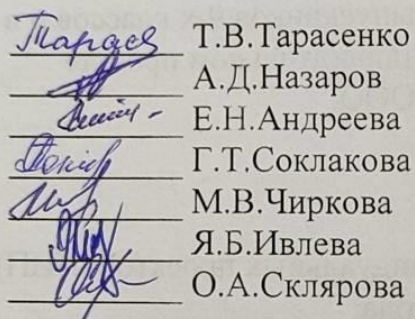 Т.В.Тарасенко
А.Д.Назаров
Е.Н.Андреева
Г.Т.Соклакова
М.В.Чиркова
Я.Б.Ивлева
О.А.Склярова